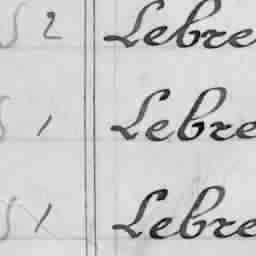 2 Lebre
1 Lebre
1 Lebre